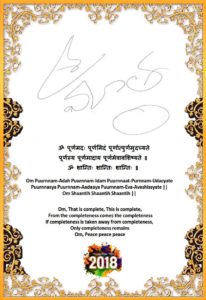 ॐ पूर्णमदः पूर्णमिदं पूर्णात्पूर्णमुदच्यते
पूर्णस्य पूर्णमादाय पूर्णमेवावशिष्यते ॥
ॐ शान्तिः शान्तिः शान्तिः ॥
Om Puurnnam-Adah Puurnnam-Idam Puurnnaat-Purnnam-Udacyate
Puurnnasya Puurnnam-Aadaaya Puurnnam-Eva-Avashissyate ||
Om Shaantih Shaantih Shaantih ||
Om, That is complete, This is complete,
From the completeness comes the completeness
If completeness is taken away from completeness,
Only completeness remains
Om, Peace peace peace
2018